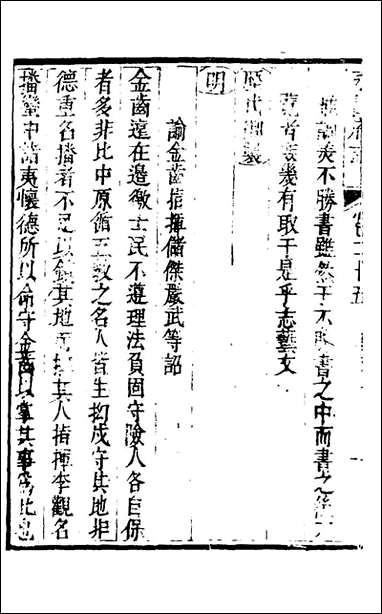 不勝書雖然于不勝書之中而書之
覽者庶幾有取于是乎志藝文
歷代
明
諭金齒指揮儲傑嚴武等詔
金齒遠在邊徼土民不遵理法負固守險人各自保
者多非比中原循三教之名人皆生拘戍守其地非
德重名播者不足以鎮其地其人指揮李觀名
播蠻中諸夷懷德所以命守金齒以掌其事爲此